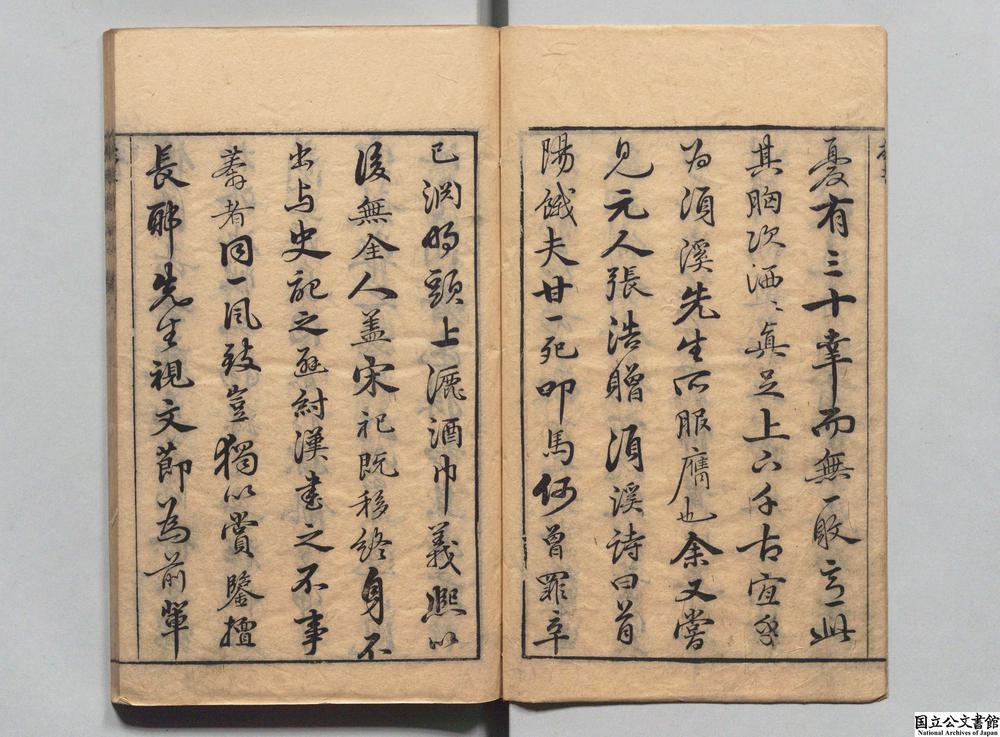 憂有三十幸而無一敗此
其胸次洒ゝ真足上下千古宜乎
为須溪先生所服膺也余又嘗
見元人張浩贈須溪詩曰首
陽餓夫甘一死叩馬何曾罪辛
已淵明頭上漉酒巾義熙以
後無全人盖宋祀既移終身不
出与史記之紂漢書之不事
莽者同一風致豈獨以賞鑒擅
長耶先生視文節為前輩
国立公文書館
National Archives of Japan